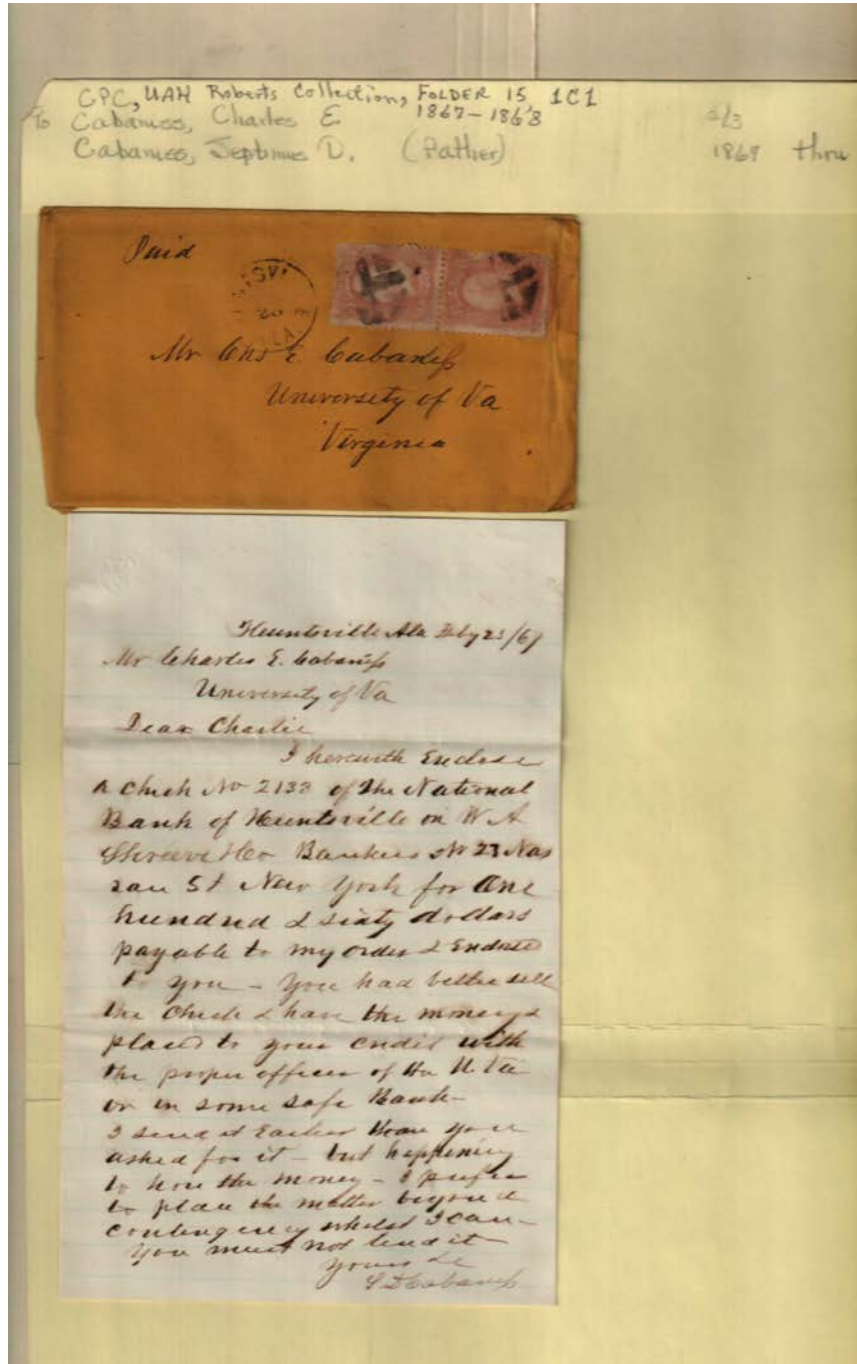 GPC, UAH Roberts Collection, FOLDER 15 1C1
To Cabaniss, Charles E 1867-1868 2/3
Cabaniss, Septimus D. (Father) 1867 thru
Paid
Mr Chs E. Cabaniss
University of Va
Virginia
Huntsville Ala Feby 23/67
Mr Charles E. Cabaniss
University of Va
Dear Charlie
I herewith Enclose
a check No 2133 of The National
Bank of Huntsville on W. A
Shreve & Co Bankers No 23 Nas
sau St New York for One
hundred & sixty dollars
payable to my order & Endorsed
to you - You had better sell
the check & have the money
placed to your credit with
the proper officer of the U. Va
or in some safe Bank-
I send it Earlier than you
asked for it - but happening
to have the money - I prefer
to place the matter beyond
contingency whilst I can-
You must not lend it
yours &c
S D Cabaniss